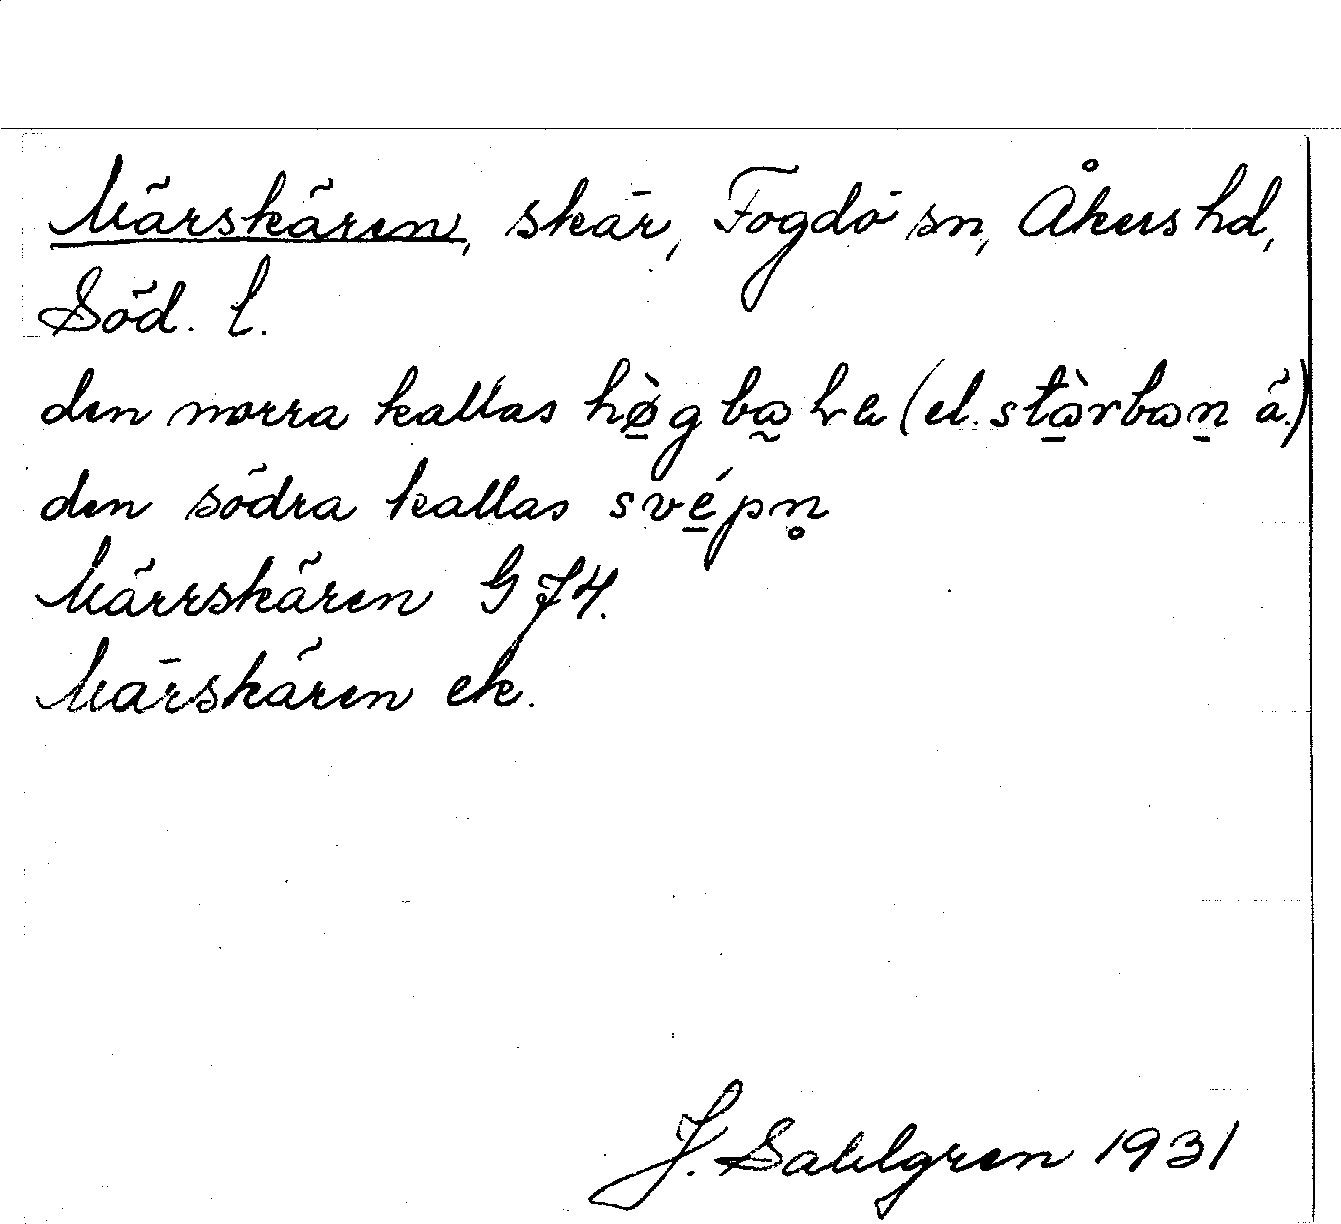 Märskären, skär, Fogdö sn, Åkers hd,
Söd. l.
den norra kallas hø̀gba (el. stàrban å.)
den södra kallas svépn̥
Märrskären G 74.
Märskären ek.
J. Sahlgren 1931